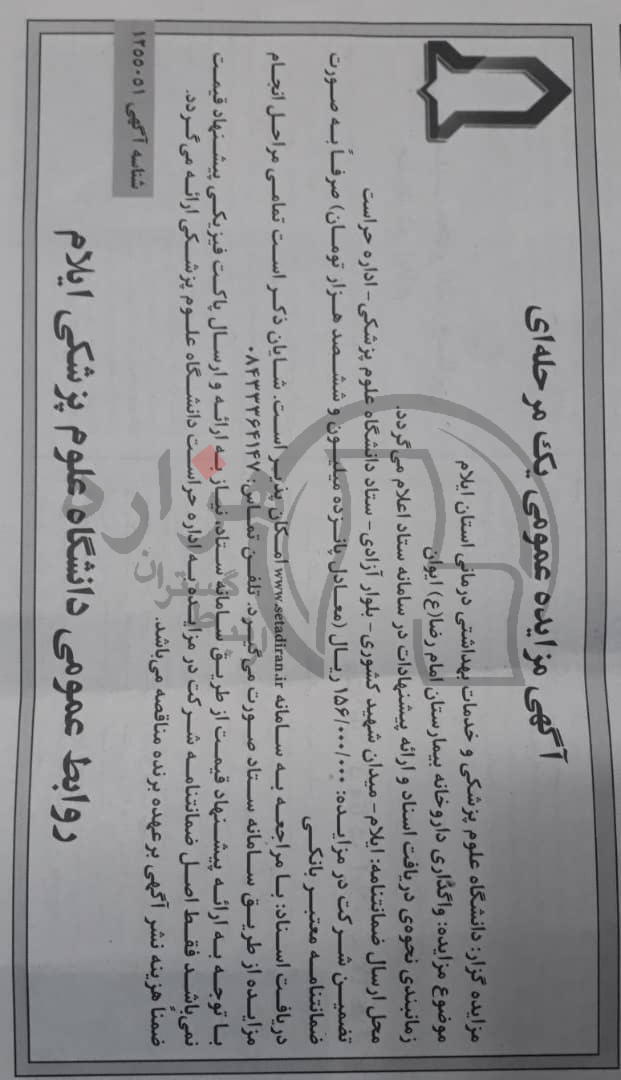 آگهی مزایده عمومی یک مرحله‌ای
مزایده گزار: دانشگاه علوم پزشکی و خدمات بهداشتی درمانی استان ایلام
موضوع مزایده: واگذاری داروخانه بیمارستان امام رضا(ع) ایوان
زمانبندی نحوه‌ی دریافت اسناد و ارائه پیشنهادات در سامانه ستاد اعلام می‌گردد.
محل ارسال ضمانتنامه: ایلام- میدان شهید کشوری- بلوار آزادی- ستاد دانشگاه علوم پزشکی- اداره حراست
تضمین شرکت در مزایده: ۱۵۶/۰۰۰/۰۰۰ ریال (معادل پانزده میلیون و ششصد هزار تومان) صرفاً به صورت
ضمانتنامه معتبر بانکی
دریافت اسناد: با مراجعه به سامانه www.setadiran.ir امکان پذیر است. شایان ذکر است تمامی مراحل انجام
مزایده از طریق سامانه ستاد صورت می‌گیرد. تلفن تماس: ۰۸۴۳۳۳۶۴۱۴۷
با توجه به ارائه پیشنهاد قیمت از طریق سامانه ستاد، نیاز به ارائه و ارسال پاکت فیزیکی پیشنهاد قیمت
نمی‌باشد فقط اصل ضمانتنامه شرکت در مزایده به اداره حراست دانشگاه علوم پزشکی ارائه می‌گردد.
ضمناً هزینه نشر آگهی برعهده برنده مناقصه می‌باشد.
شناسه آگهی ۱۲۵۵۰۵۱
روابط عمومی دانشگاه علوم پزشکی ایلام